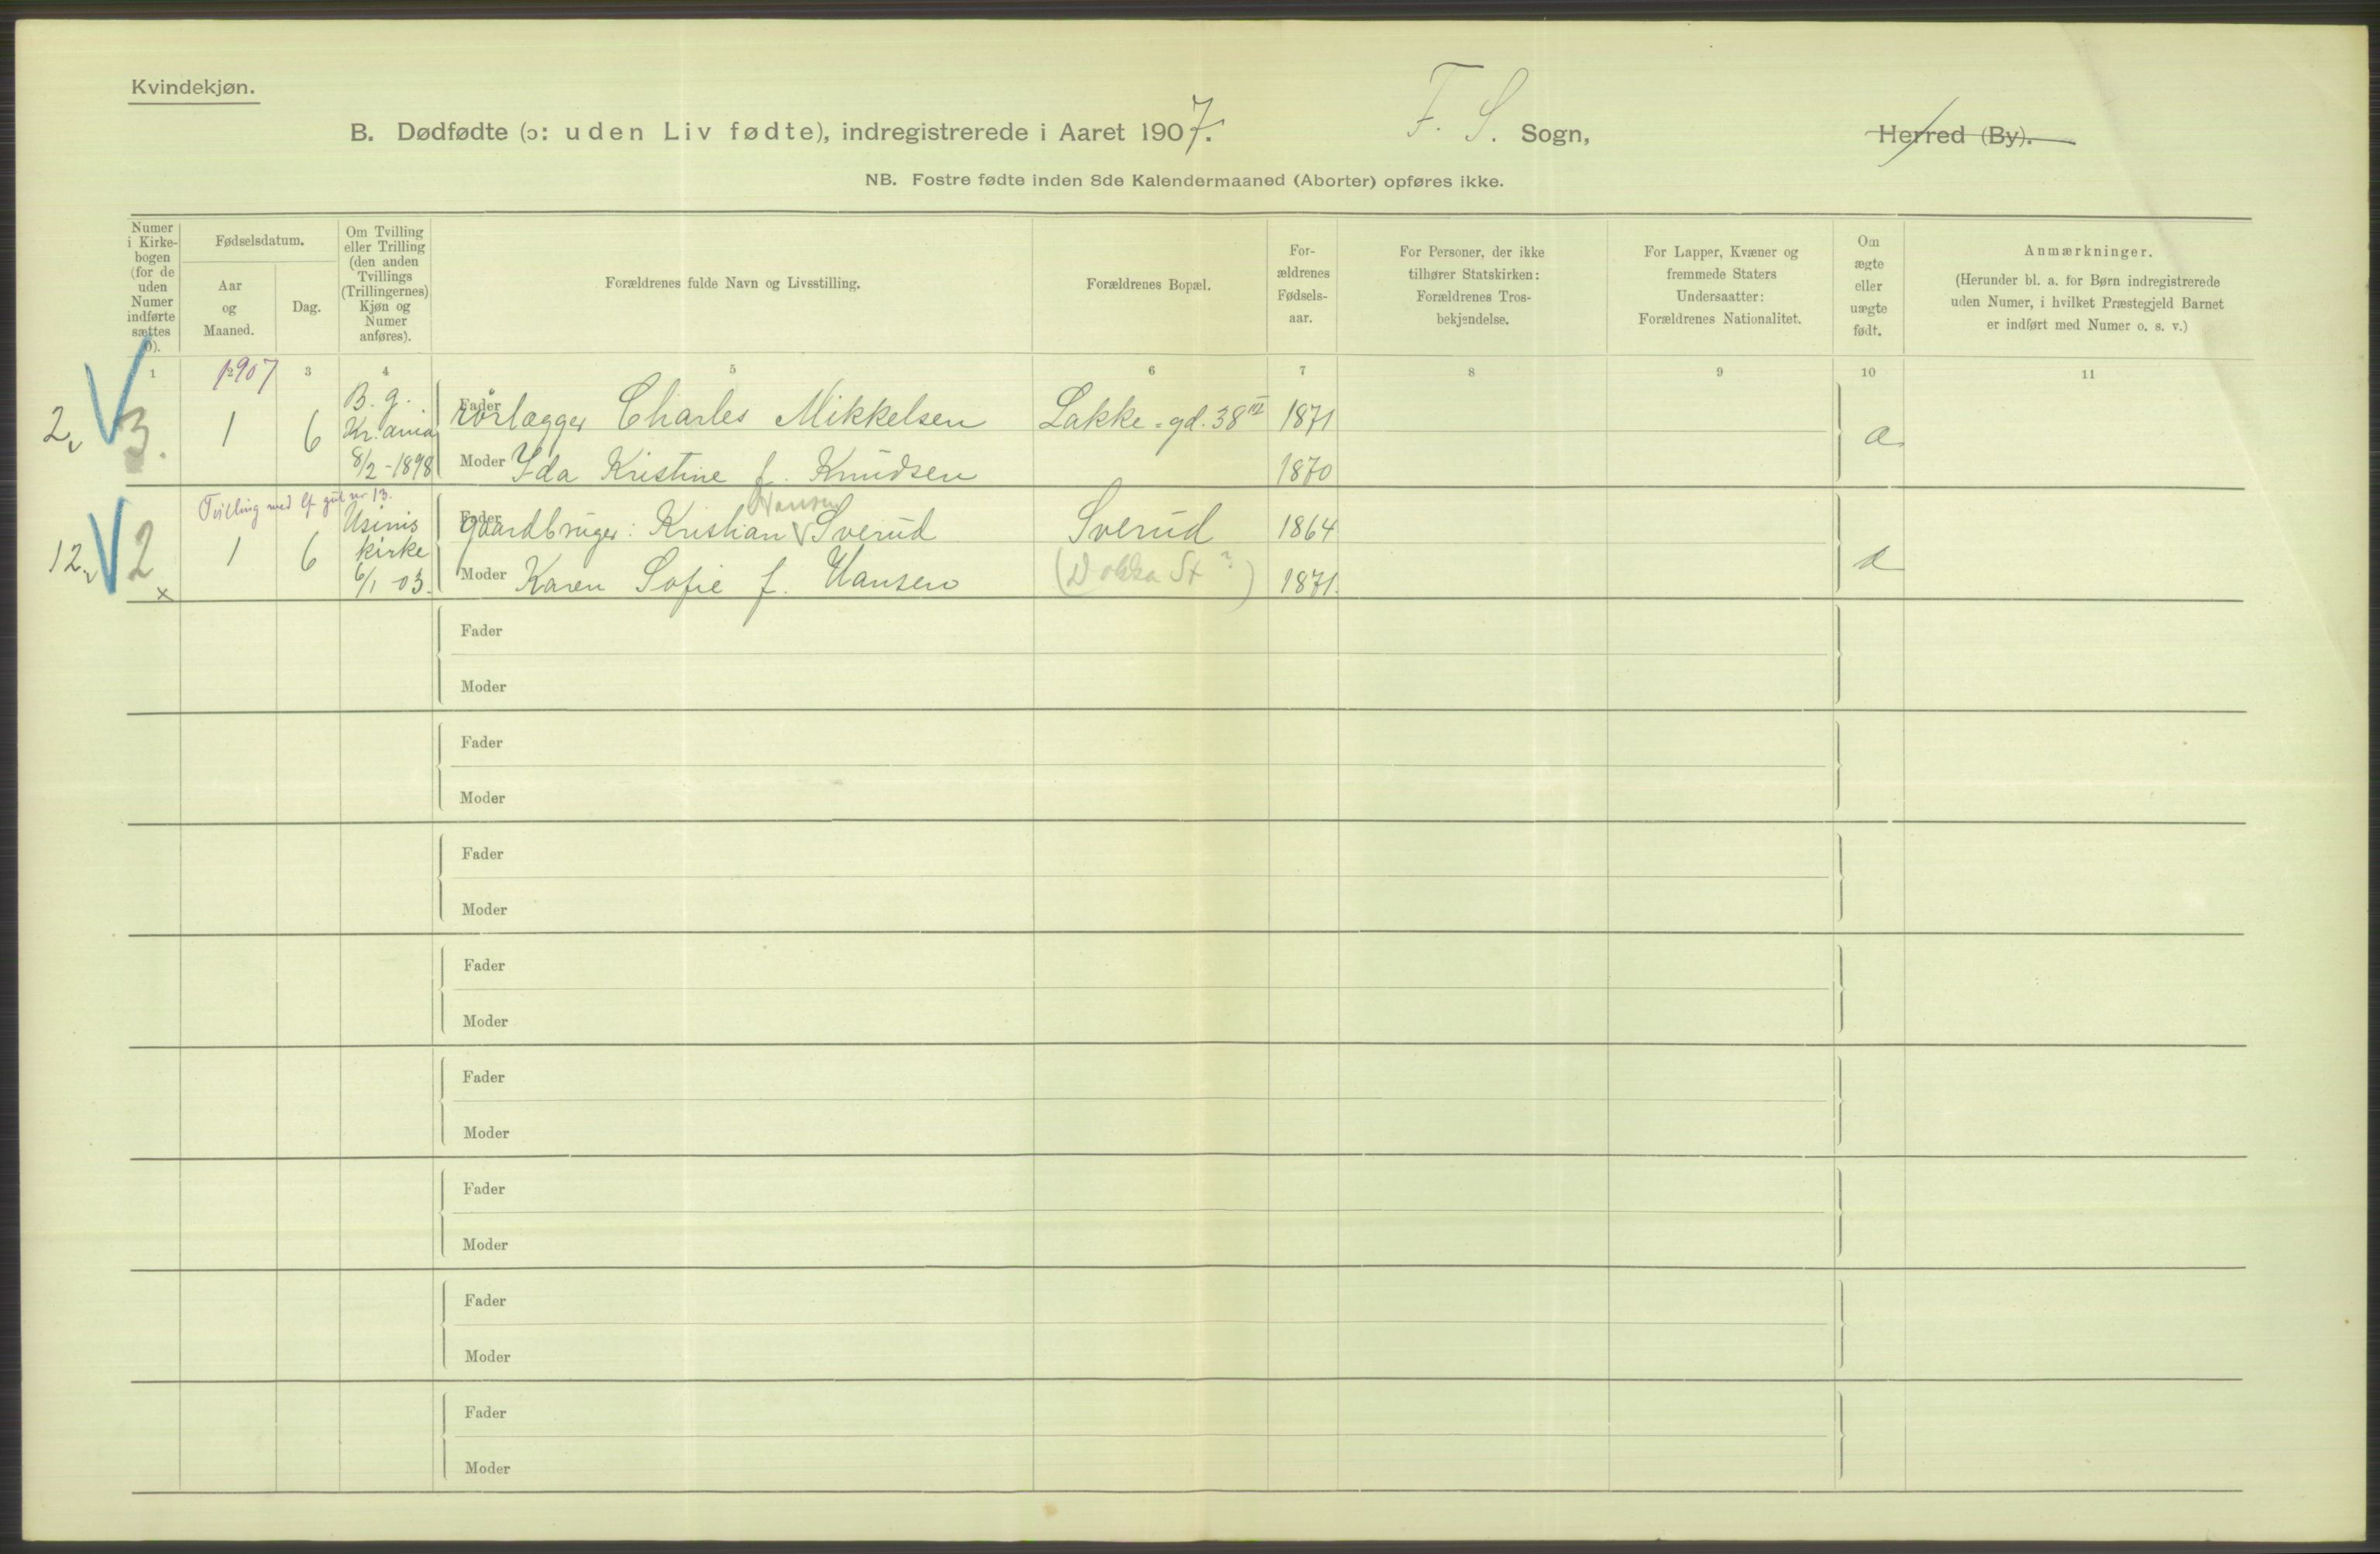 Kvindekjøn.
B. Dødfødte (ɔ: uden Liv fødte), indregistrerede i Aaret 1907. F. S. Sogn, Herred (By).
NB. Fostre fødte inden 8de Kalendermaaned (Aborter) opføres ikke.
Numer
i Kirke-
bogen
(for de
uden
Numer
indførte
sættes
0).
Fødselsdatum.
Aar
og
Maaned.
Dag.
Om Tvilling
eller Trilling
(den anden
Tvillings
(Trillingernes)
Kjøn og
Numer
anføres).
Forældrenes fulde Navn og Livsstilling.
Forældrenes Bopæl.
For-
ældrenes
Fødsels-
aar.
For Personer, der ikke
tilhører Statskirken:
Forældrenes Tros-
bekjendelse.
For Lapper, Kvæner og
fremmede Staters
Undersaatter:
Forældrenes Nationalitet.
Om
ægte
eller
uægte
født.
Anmærkninger.
(Herunder bl. a. for Børn indregistrerede
uden Numer, i hvilket Præstegjeld Barnet
er indført med Numer o. s. v.)
1 1907 3 4 5 6 7 8 9 10 11
2. 3. 1 6
B. g.
Kr.ania
8/2-1898
Fader rørlægger Charles Mikkelsen Lakke-gd. 38 III 1871
Moder Ida Kristine f. Knudsen 1870
Tvilling med gut nr 13.
12. 2 x 1 6
kirke
6/1 03.
Hansen
Fader gaardbruger: Kristian Sverud Sverud 1864
Moder Karen Sofie f. Hansen (Dokka St ?) 1871.
Fader
Moder
Fader
Moder
Fader
Moder
Fader
Moder
Fader
Moder
Fader
Moder
Fader
Moder
Fader
Moder